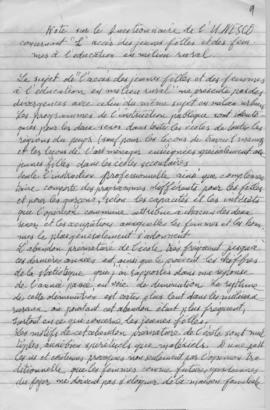 9
Note sur le Questionnaire de l'UNESCO
concernant "L'accès des jeunes filles et des fem-
mes à l'éducation en milieu rural
Le sujet de "l'accès des jeunes filles et des femmes
à l'éducation en milieu rural" ne présente pas de
divergences avec celui du même sujet en milieu urbain.
Les programmes de l'instruction publique sont identi-
ques pour les deux sexes dans toutes les écoles de toutes les
régions du pays (sauf pour les leçons de travail manuel
et les leçons de l'art ménager, enseignées spécialement aux
jeunes filles dans les écoles secondaires.
Seule l'instruction professionnelle ainsi que complémen-
taire comporte des programmes différents pour les filles
et pour les garçons, selon les capacités et les intérêts
que l'opinion commune attribue à chacun des deux
sexes, et les occupations auxquelles les femmes et les hom-
mes le plus généralement s'adonnent.
L'abandon prématuré de l'école, très fréquent jusqu'à
ces dernières années est, ainsi que le prouvent les chiffres
de la statistique que j'ai rapportés dans une réponse
de l'année passée, en voie de diminution. Le rythme
de cette diminution est certes plus lent dans les milieux
ruraux où pourtant cet abandon était plus fréquent,
surtout en ce qui concerne les jeunes filles.
Les motifs de cet abandon prématuré de l'école sont mul-
tiples, aussi bien spirituels que matériels. D'une part
les us et coutumes provenus non seulement par l'opinion tra-
ditionnelle que les femmes comme futures gardiennes
du foyer ne doivent pas s'éloigner de la maison familiale